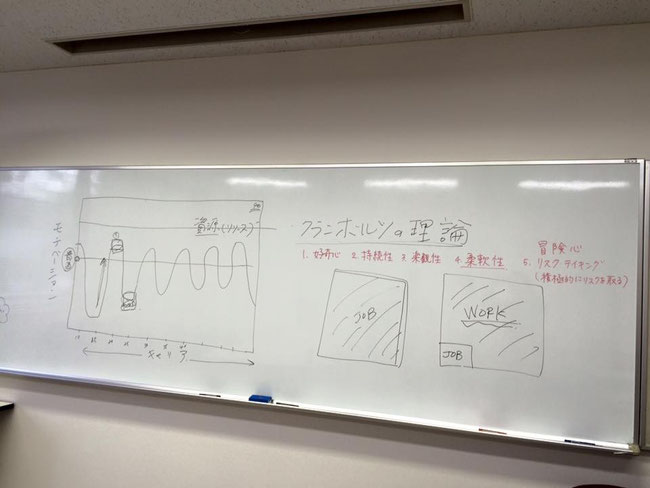 モチベーション
資源(リソース)
キャリア
クランボルツの理論
1. 好奇心 2. 持続性 3. 楽観性 4. 柔軟性 5. リスクテイキング
冒険心
(積極的にリスクを取る)
JOB
WORK
JOB